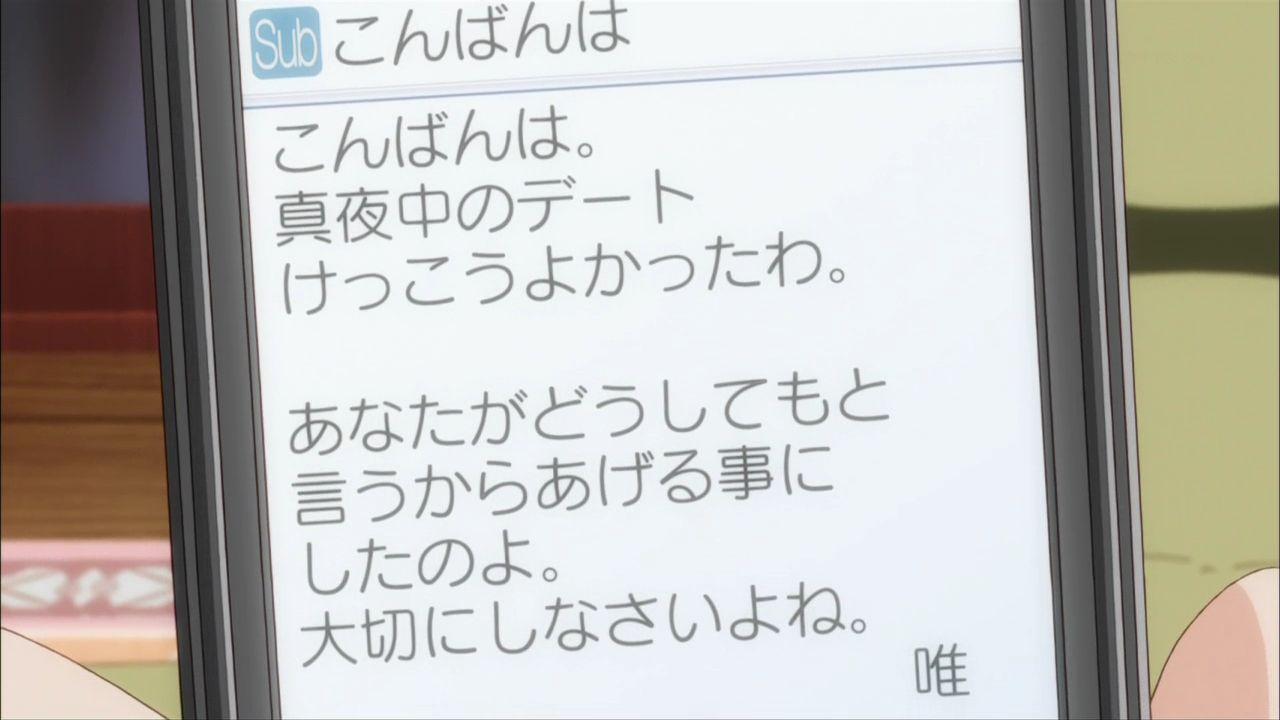 Sub こんばんは
こんばんは。
真夜中のデート
けっこうよかったわ。
あなたがどうしてもと
言うからあげる事に
したのよ。
大切にしなさいよね。
唯